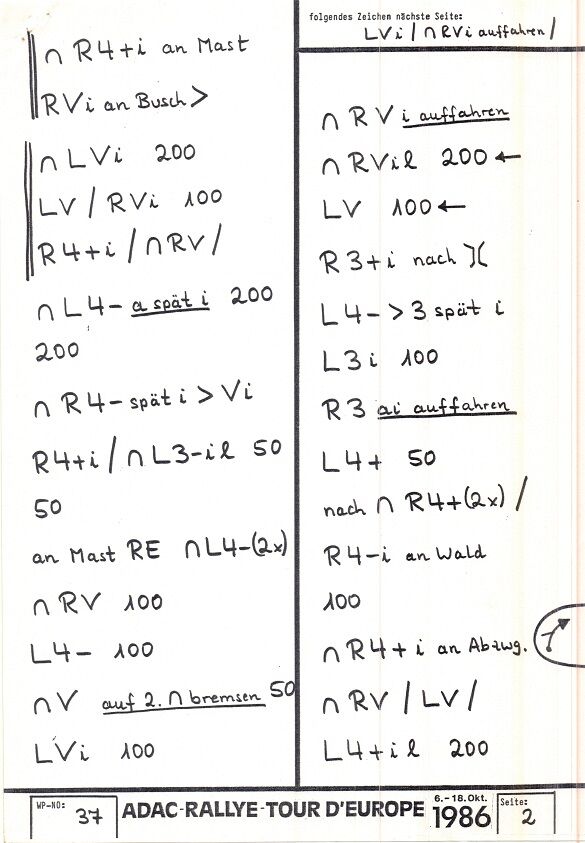 ∩ R4+i an Mast
RVi an Busch >
∩ LVi 200
LV / RVi 100
R4+i / ∩RV /
∩ L4- a spät i 200
200
∩ R4- spät i > Vi
R4+i / ∩ L3-il 50
50
an Mast RE ∩L4-(2x)
∩ RV 100
L4- 100
∩V auf 2. ∩ bremsen 50
LVi 100
folgendes Zeichen nächste Seite:
LVi / ∩ RVi auffahren /
∩ RV i auffahren
∩ RVil 200 ←
LV 100 ←
R3+i nach )(
L4- > 3 spät i
L3i 100
R3 ai auffahren
L4+ 50
nach ∩ R4+(2x) /
R4-i an Wald
100
∩ R4+i an Abzwg.
∩ RV / LV /
L4+il 200
WP-NO: 37
ADAC-RALLYE-TOUR D'EUROPE
6.-18.Okt. 1986
Seite: 2